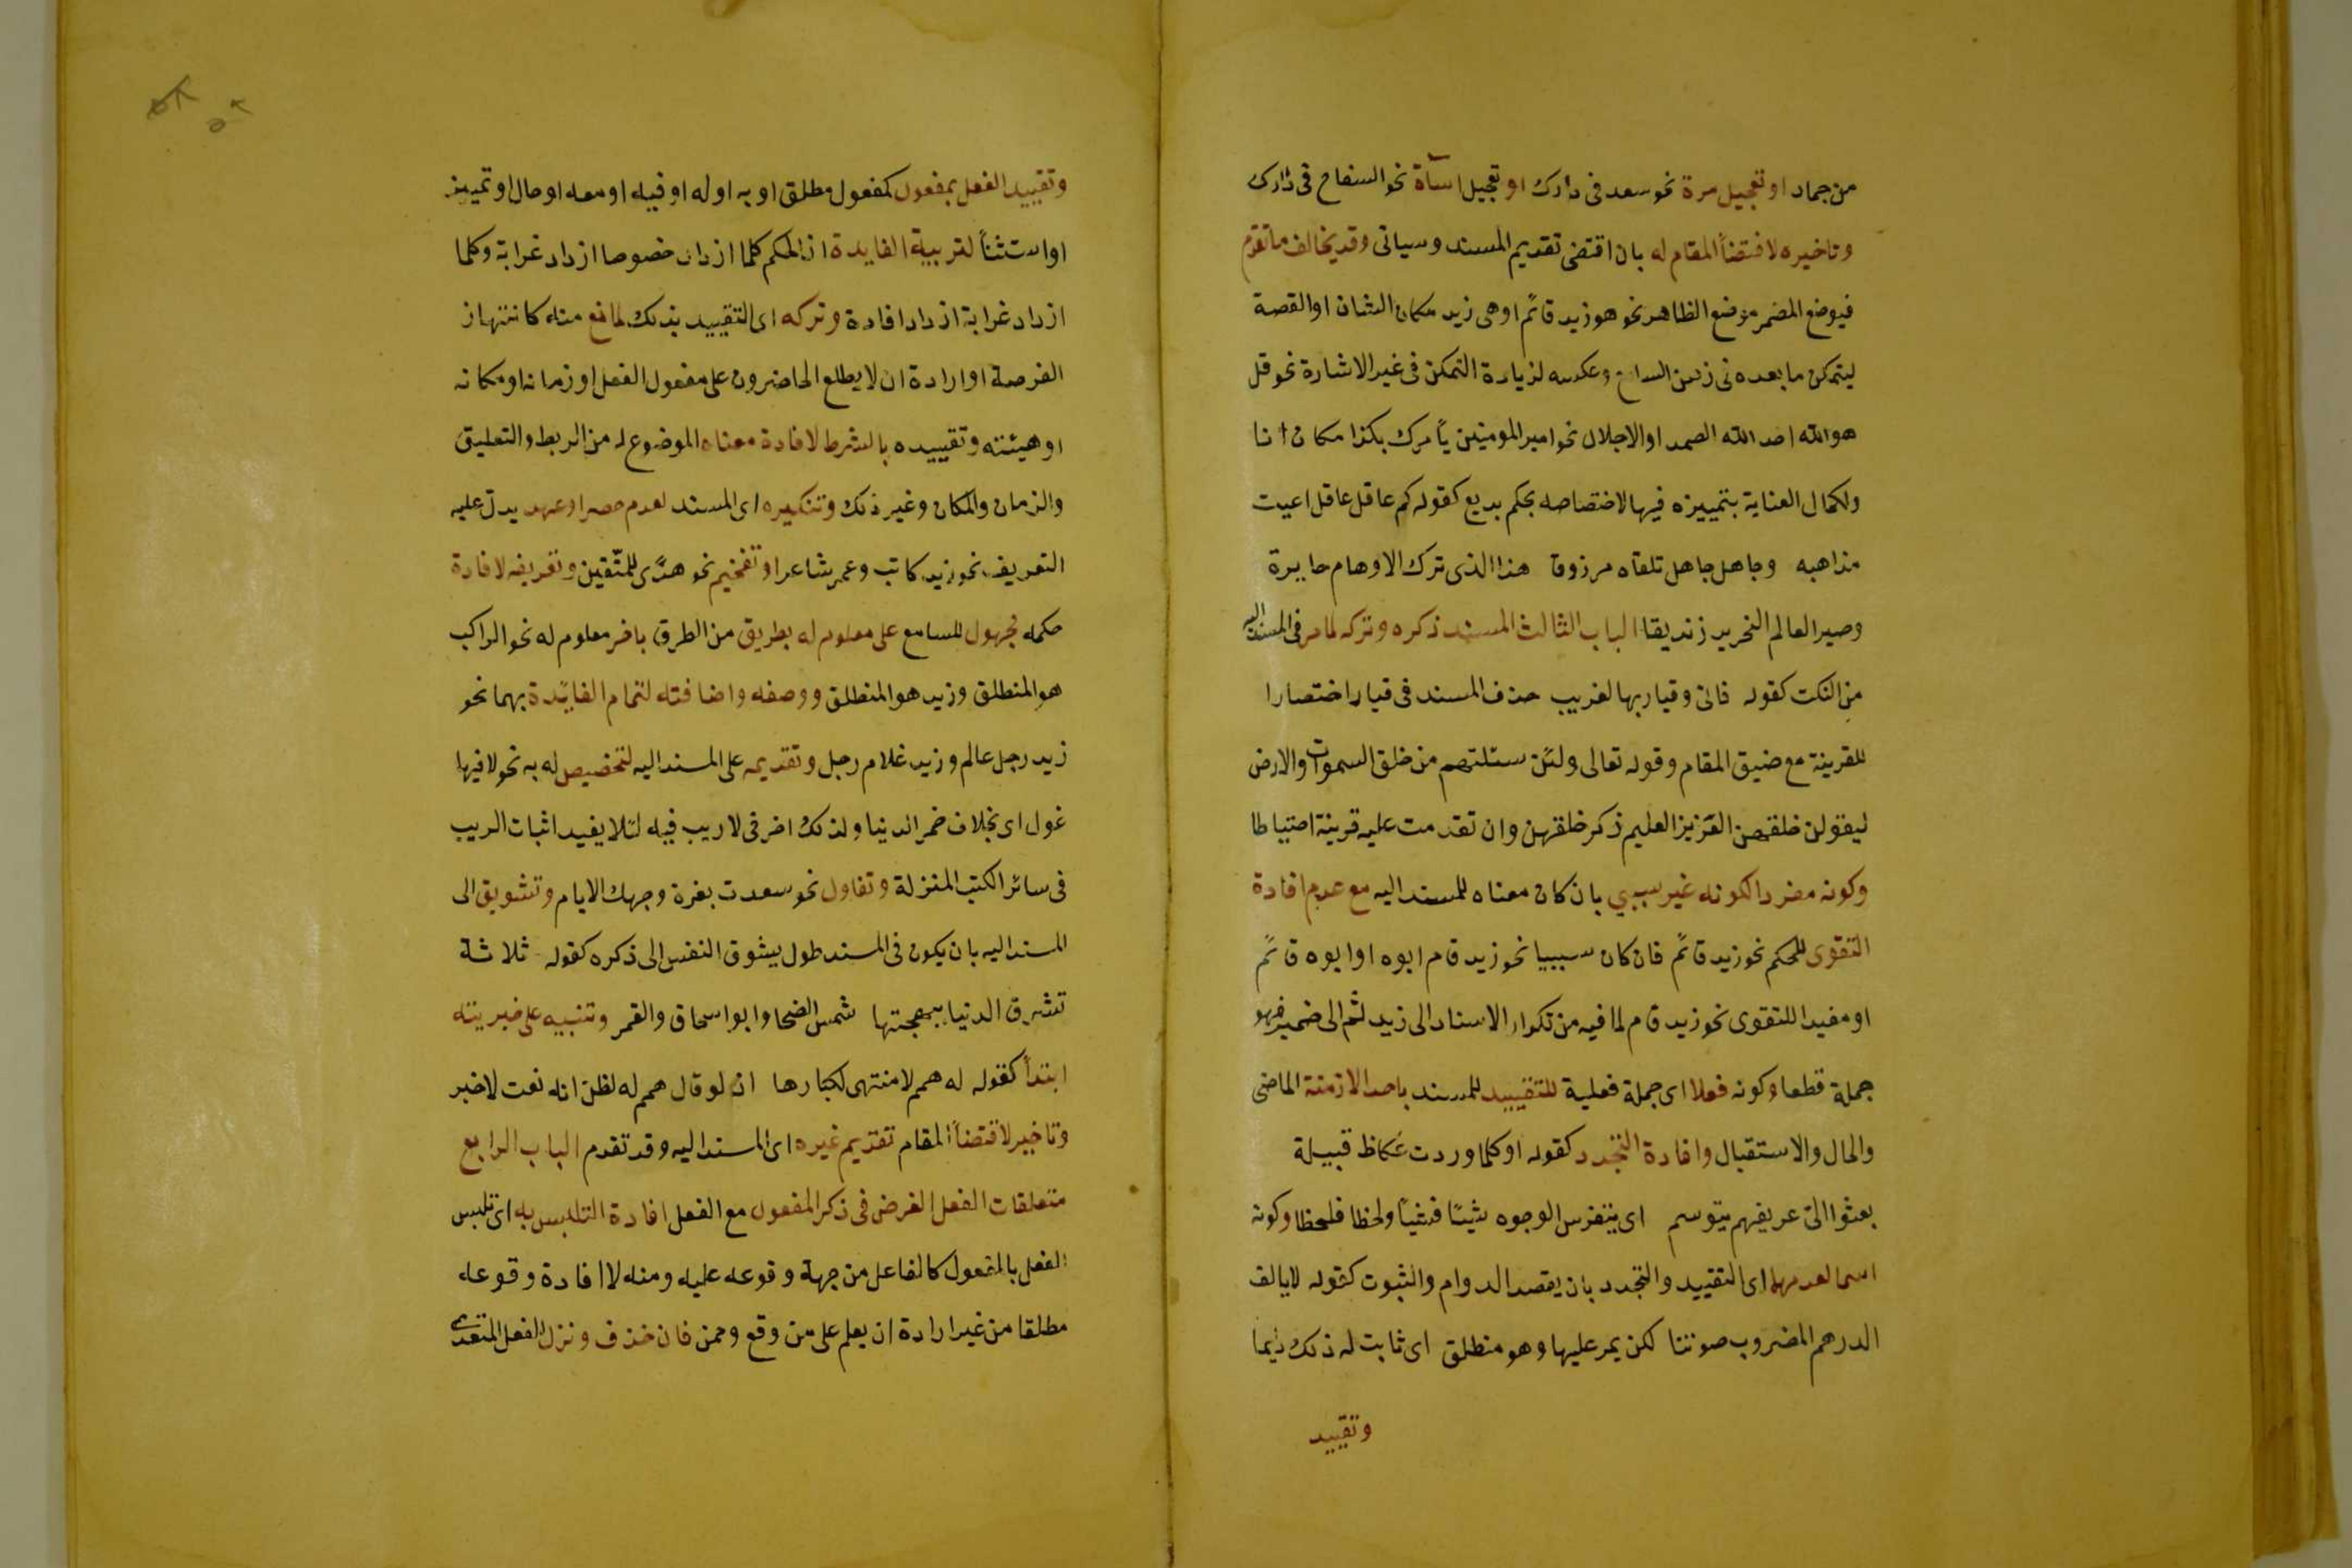 من جماد او تعجيل مرة نحو سعد فى دارك او تعجيل اسآة نحو السفاح فى دارك
وتاخيره لاقتضاً المقام له بان اقتضى تقديم المسند وسياتى وقد يخالف ما تقدم
فيوضع المضمر موضع الظاهر نحو هو زيد قائم او هى زيد مكان الشان او القصة
ليتمكن ما بعده فى ذهن السامع وعكسه لزيادة التمكن فى غير الاشارة نحو قل
هو الله احد الله الصمد او الاجلال نحو امير المومنين يأمرك بكذا مكان انا
ولكمال العناية بتمييزه فيها لاختصاصه بحكم بديع كقوله كم عاقل عاقل اعيت
مذاهبه وجاهل جاهل تلقاه مرزوقا هذا الذى ترك الاوهام حايرة
وصير العالم النحرير زنديقا الباب الثالث المسند ذكره وتركه لما مر فى المسند اليه
من النكت كقوله فانى وقيار بها لغريب حذف المسند فى قيار اختصارا
للقرينة مع ضيق المقام وقوله تعالى ولئن سئلتهم من خلق السموات والارض
ليقولن خلقهن العزيز العليم ذكر خلقهن وان تقدمت عليه قرينة احتياطا
وكونه مفردا لكونه غير سببي بان كان معناه للمسند اليه مع عدم افادة
التقوى للحكم نحو زيد قائم فان كان سببيا نحو زيد قام ابوه او ابوه قائم
او مفيدا للتقوى نحو زيد قام لما فيه من تكرار الاسناد الى زيد ثم الى ضميره فهو
جملة قطعا وكونه فعلا اى جملة فعلية للتقييد للمسند باحد الازمنة الماضى
والحال والاستقبال وافادة التجدد كقوله او كلما وردت عكاظ قبيلة
بعثوا الىّ عريفهم يتوسم اى يتفرس الوجوه شيئا فشيئا ولحظا فلحظا وكونه
اسما لعدمهما اى التقييد والتجدد بان يقصد الدوام والثبوت كقوله لا يالف
الدرهم المضروب صرتنا لكن يمر عليها وهو منطلق اى ثابت له ذلك دايما
وتقييد
وتقييد الفعل بمفعول كمفعول مطلق او به او له او فيه او معه او حال او تمييز
او استثناً لتربية الفايدة اذ الحكم كلما ازداد خصوصا ازداد غرابة وكلما
ازداد غرابة ازداد افادة وتركه اى التقييد بذلك لمانع منه كانتهاز
الفرصة او ارادة ان لا يطلع الحاضرون على مفعول الفعل او زمانه او مكانه
او هيئته وتقييده بالشرط لافادة معناه الموضوع له من الربط والتعليق
والزمان والمكان وغير ذلك وتنكيره اى المسند لعدم حصر او عهد يدل عليه
التعريف نحو زيد كاتب وعمر شاعر او تفخيم نحو هدًى للمتّقين وتعريفه لافادة
حكمه لمجهول للسامع على معلوم له بطريق من الطرق باخر معلوم له نحو الراكب
هو المنطلق وزيد هو المنطلق ووصفه واضافته لتمام الفائدة بهما نحو
زيد رجل عالم وزيد غلام رجل وتقديمه على المسند اليه لتخصيص له به نحو لا فيها
غول اى بخلاف خمر الدنيا ولذلك اخر فى لا ريب فيه لئلا يفيد اثبات الريب
فى سائر الكتب المنزلة وتفاول نحو سعدت بغرة وجهك الايام وتشويق الى
المسند اليه بان يكون فى المسند طول يشوق النفس الى ذكره كقوله ثلاثة
تشرق الدنيا ببهجتها شمس الضحا وابو اسحاق والقمر وتنبيه على خبريته
ابتداً كقوله له همم لا منتهى لكبارها اذ لو قال همم له لظن انه نعت لا خبر
وتاخير لاقتضاً المقام تقديم غيره اى المسند اليه وقد تقدم الباب الرابع
متعلقات الفعل الغرض فى ذكر المفعول مع الفعل افادة التلبس به اى تلبس
الفعل بالمفعول كالفاعل من جهة وقوعه عليه ومنه لا افادة وقوعه
مطلقا من غير ارادة ان يعلم على من وقع وممن فان حذف ونزل الفعل المتعدى